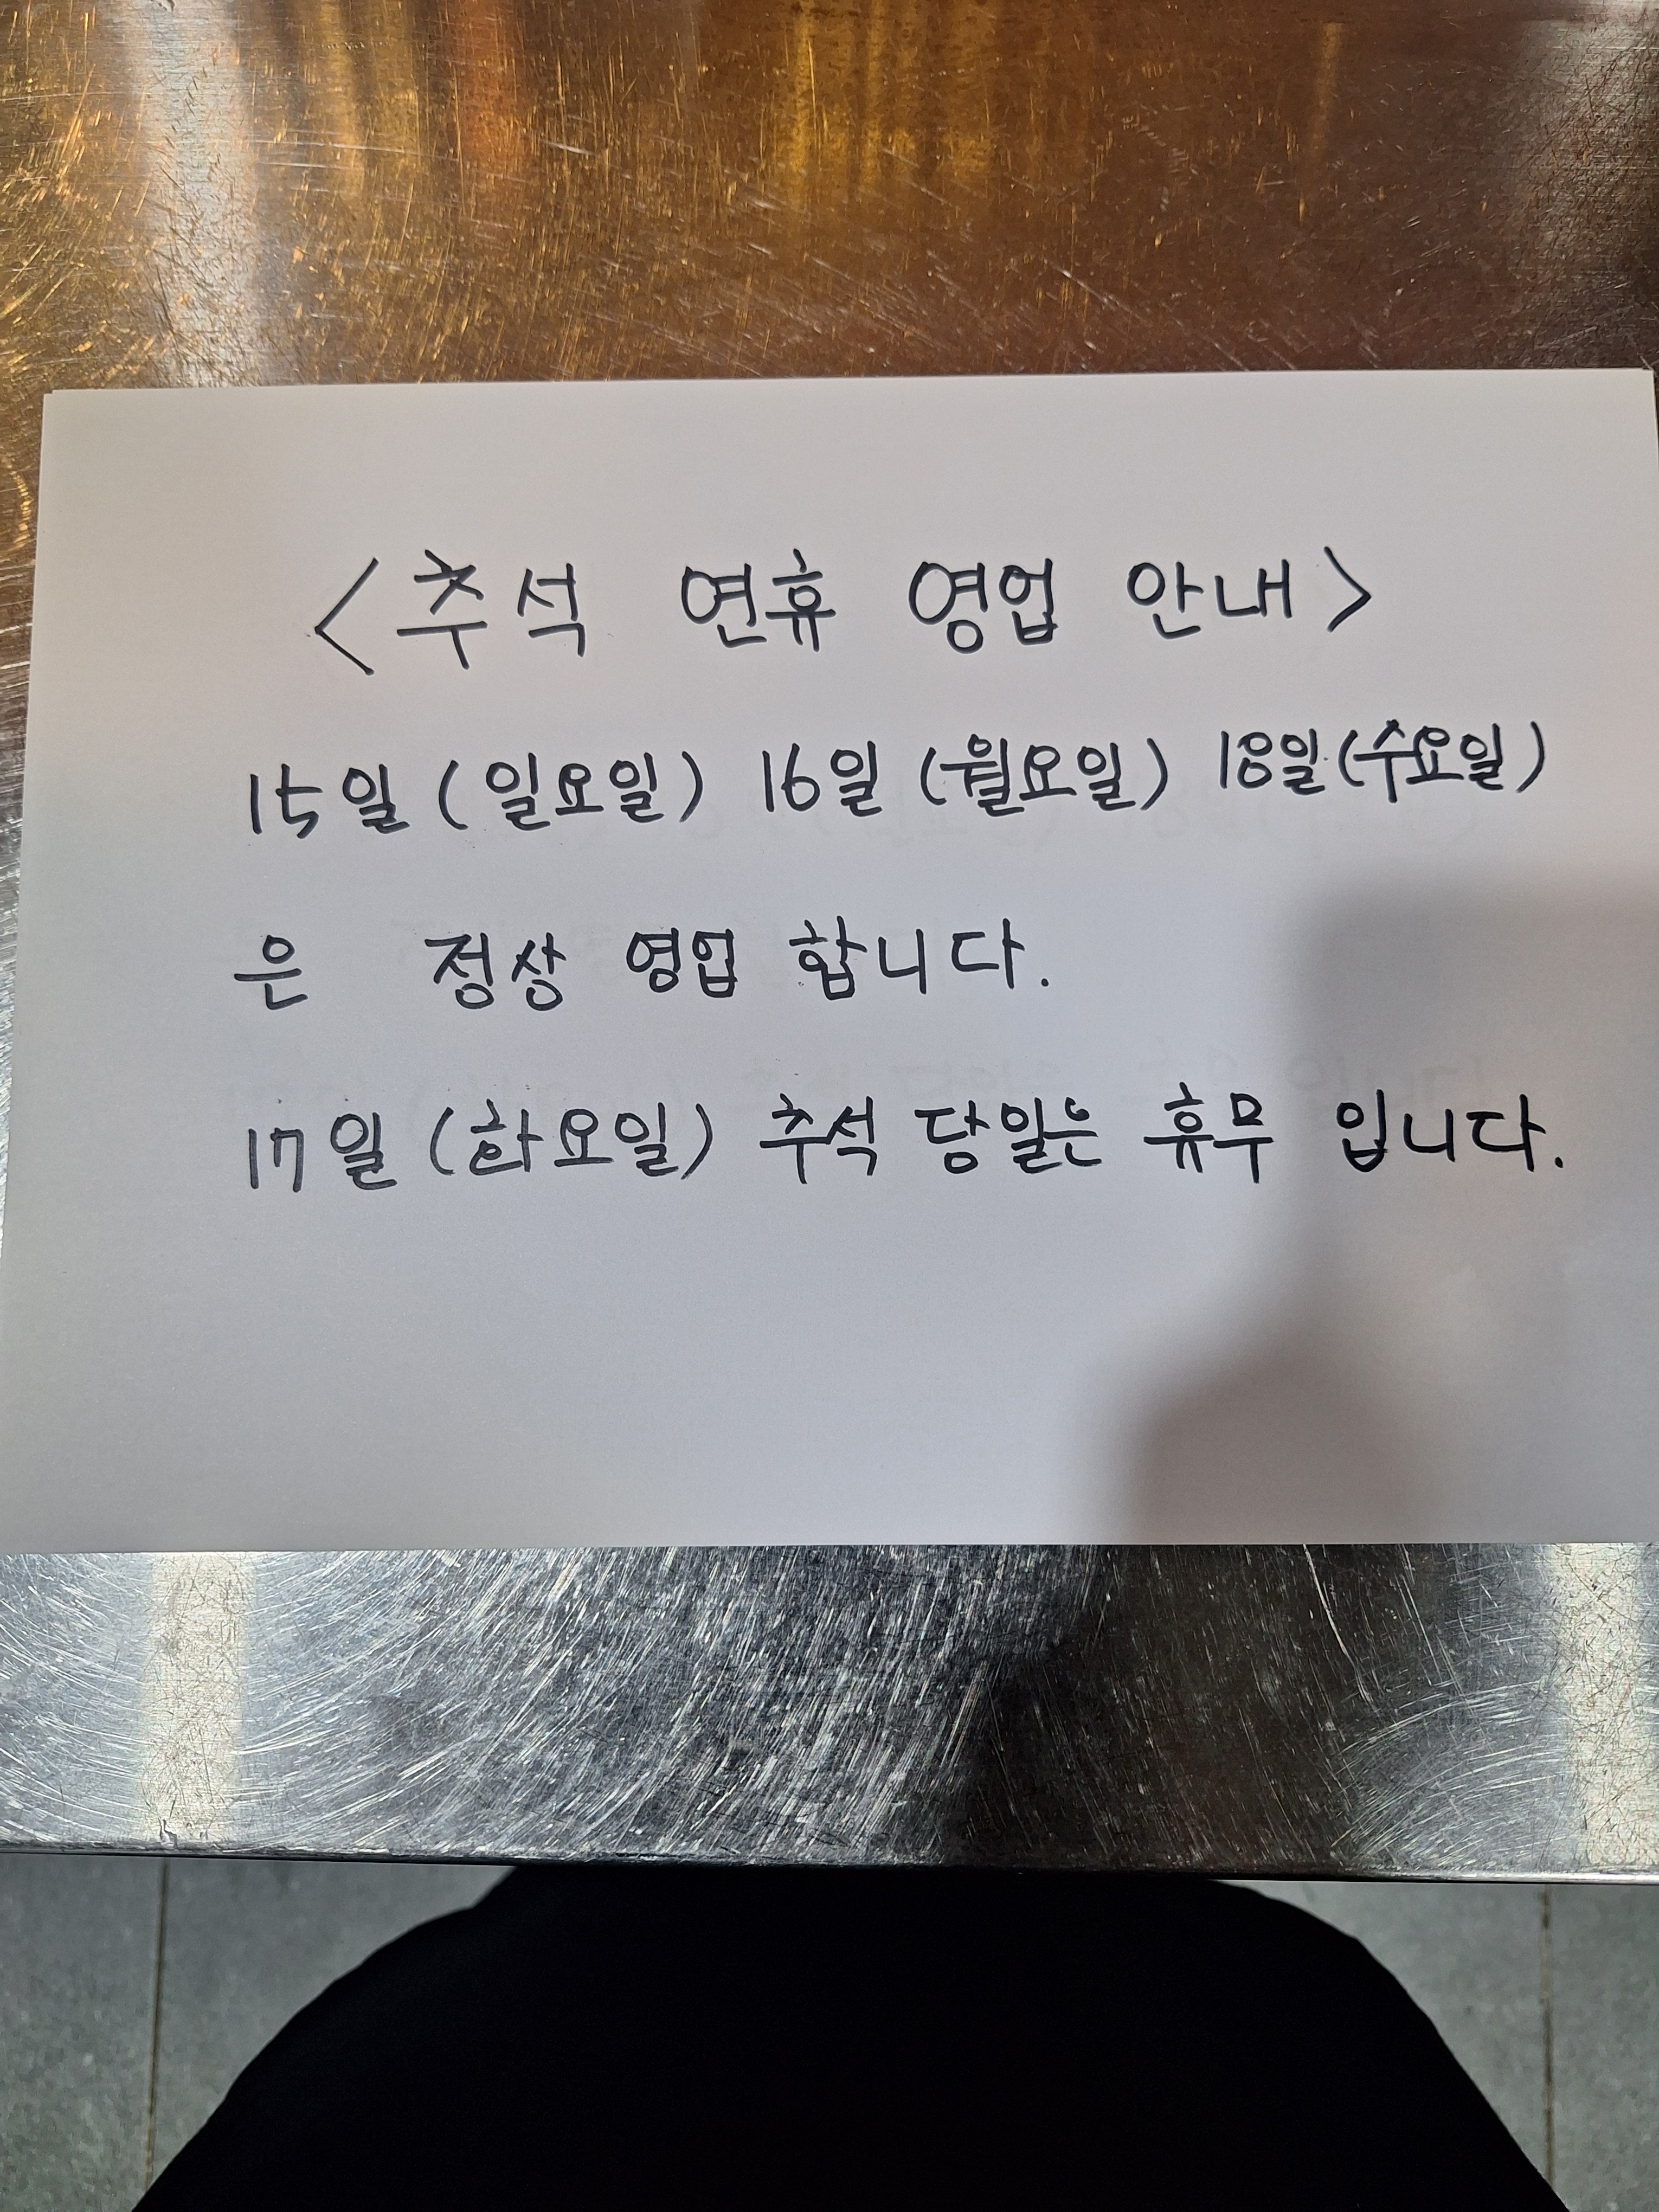 <추석 연휴 영업 안내>
15일 (일요일) 16일 (월요일) 18일 (수요일)
은 정상 영업 합니다.
17일 (화요일) 추석 당일은 휴무 입니다.